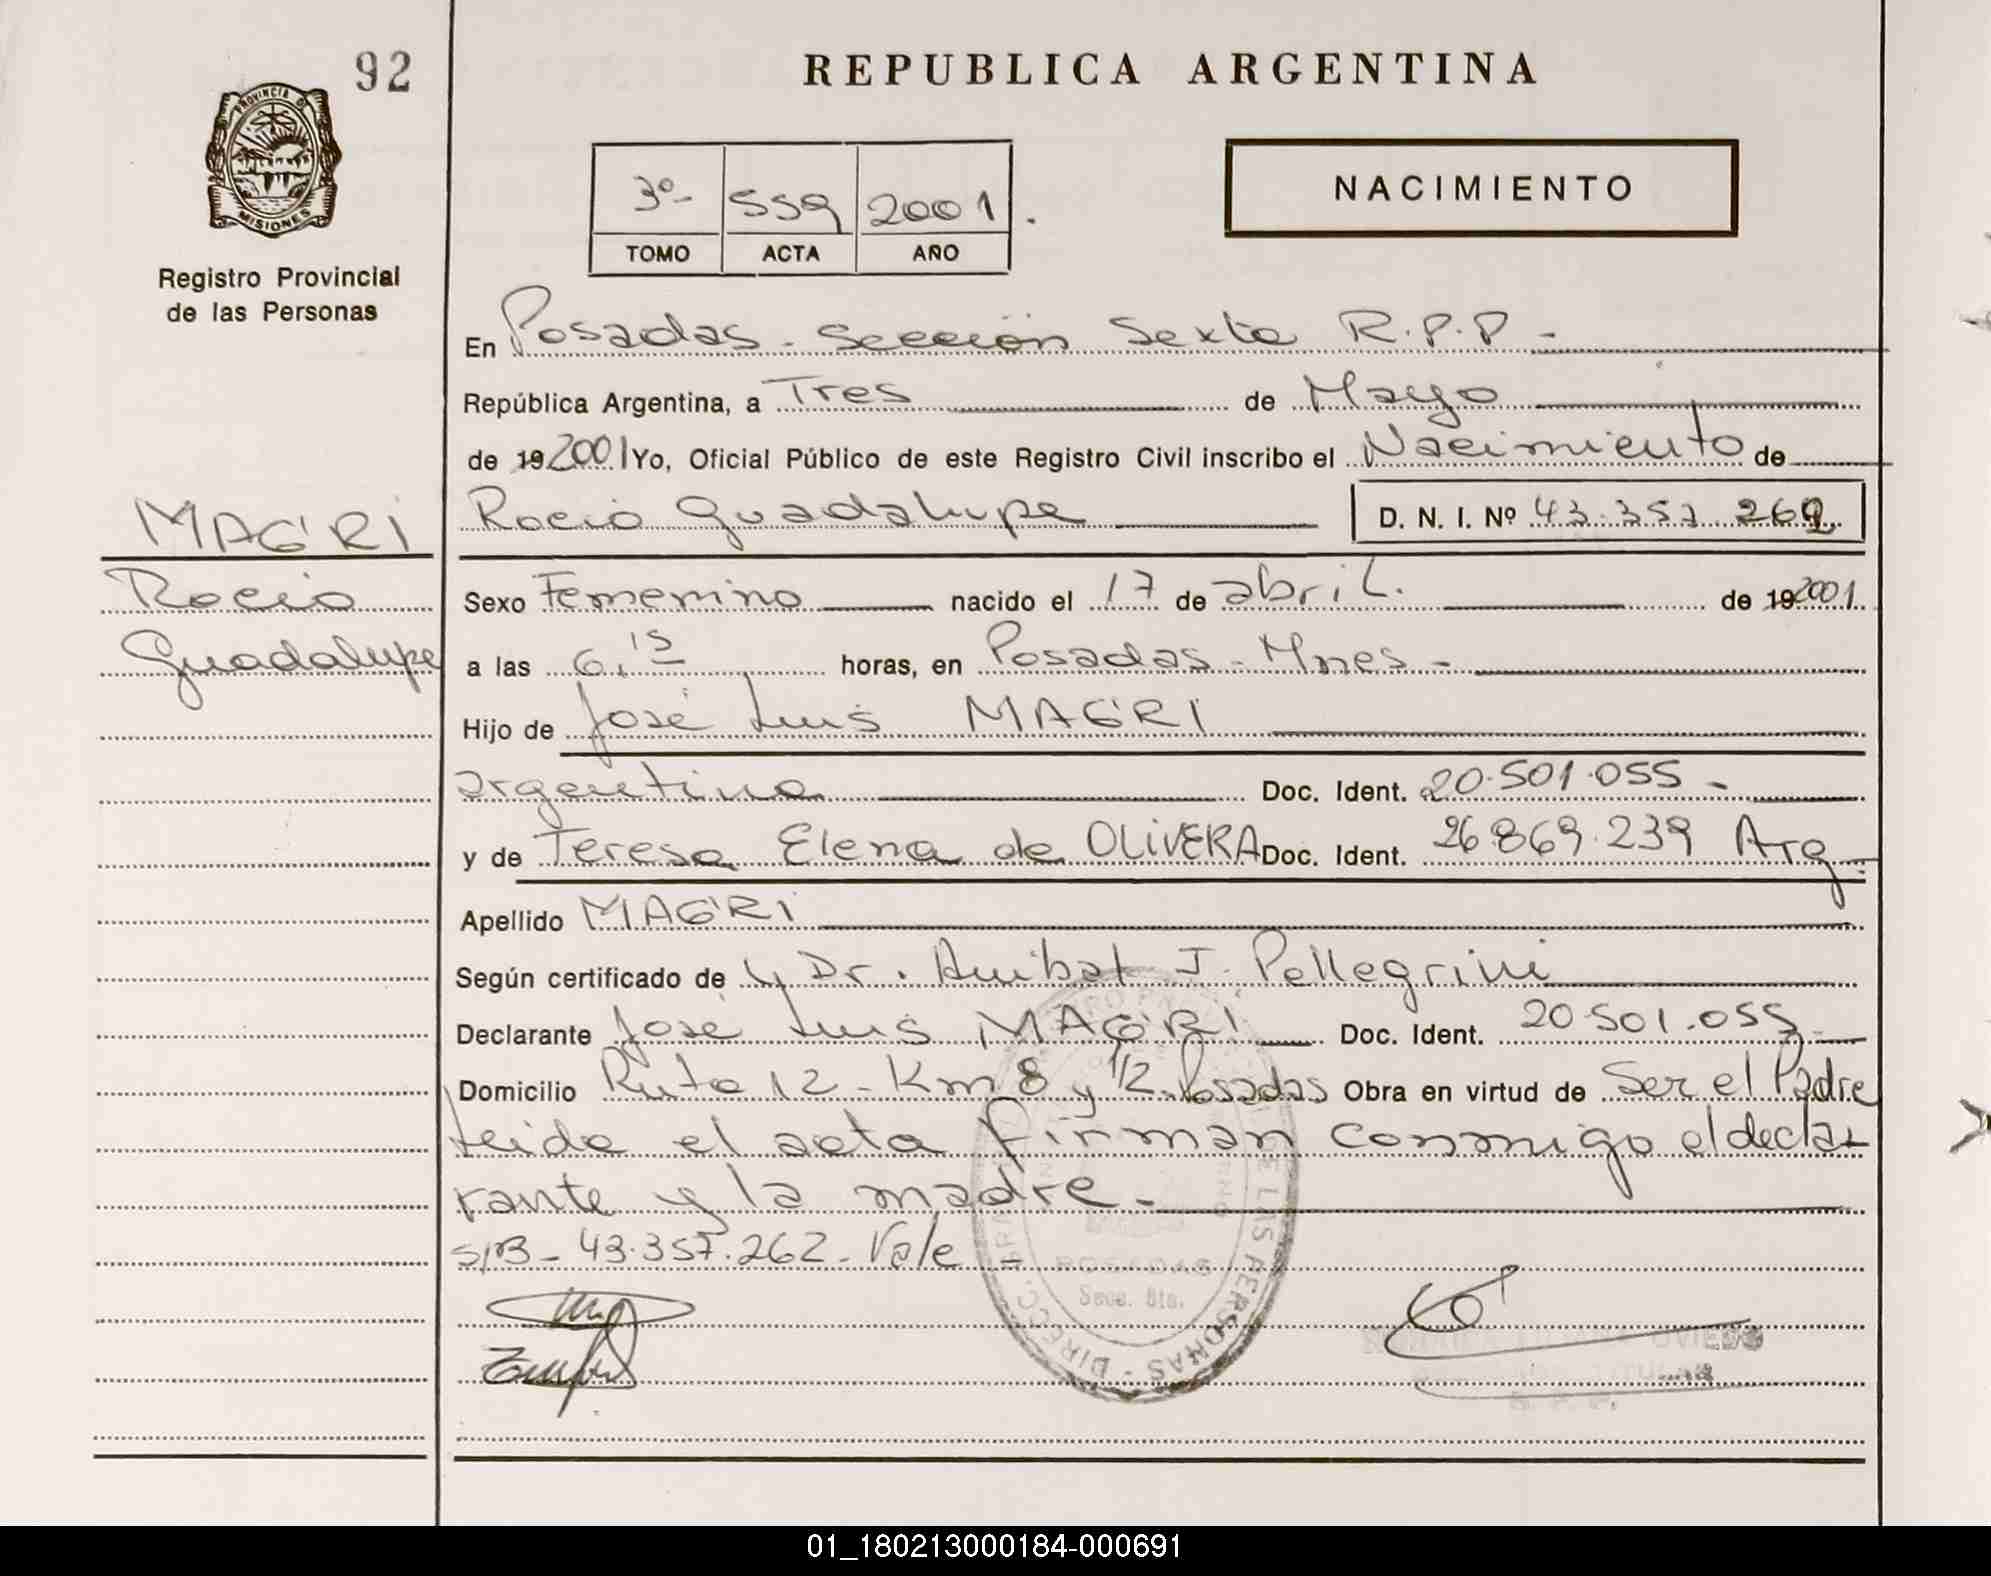 92
REPUBLICA ARGENTINA
PROVINCIA DE
MISIONES
Registro Provincial
de las Personas
3º- 559 2001.
TOMO ACTA AÑO
NACIMIENTO
En Posadas - Sección Sexta R.P.P -
República Argentina, a Tres de Mayo
de 19 2001 Yo, Oficial Público de este Registro Civil inscribo el Nacimiento de
MAGRI
Rocio Guadalupe D. N. I. Nº 43.357.262
Rocio
Guadalupe
Sexo Femenino nacido el 17 de abril. de 19 2001.
a las 6,15 horas, en Posadas - Mnes -
Hijo de José Luis MAGRI
argentina Doc. Ident. 20.501.055 -
y de Teresa Elena de OLIVERA Doc. Ident. 26.869.239 Arg.
Apellido MAGRI
Según certificado de y Dr. Anibal J. Pellegrini
Declarante José Luis MAGRI Doc. Ident. 20.501.055
Domicilio Ruta 12 - Km 8 y 1/2 - Posadas Obra en virtud de Ser el Padre
Leida el acta firman conmigo el decla-
rante y la madre.-
S/B - 43.357.262 - Vale =
DE LAS PERSONAS - DIRECC
POSADAS
Secc. 6ta.
OVIEDO
01_180213000184-000691